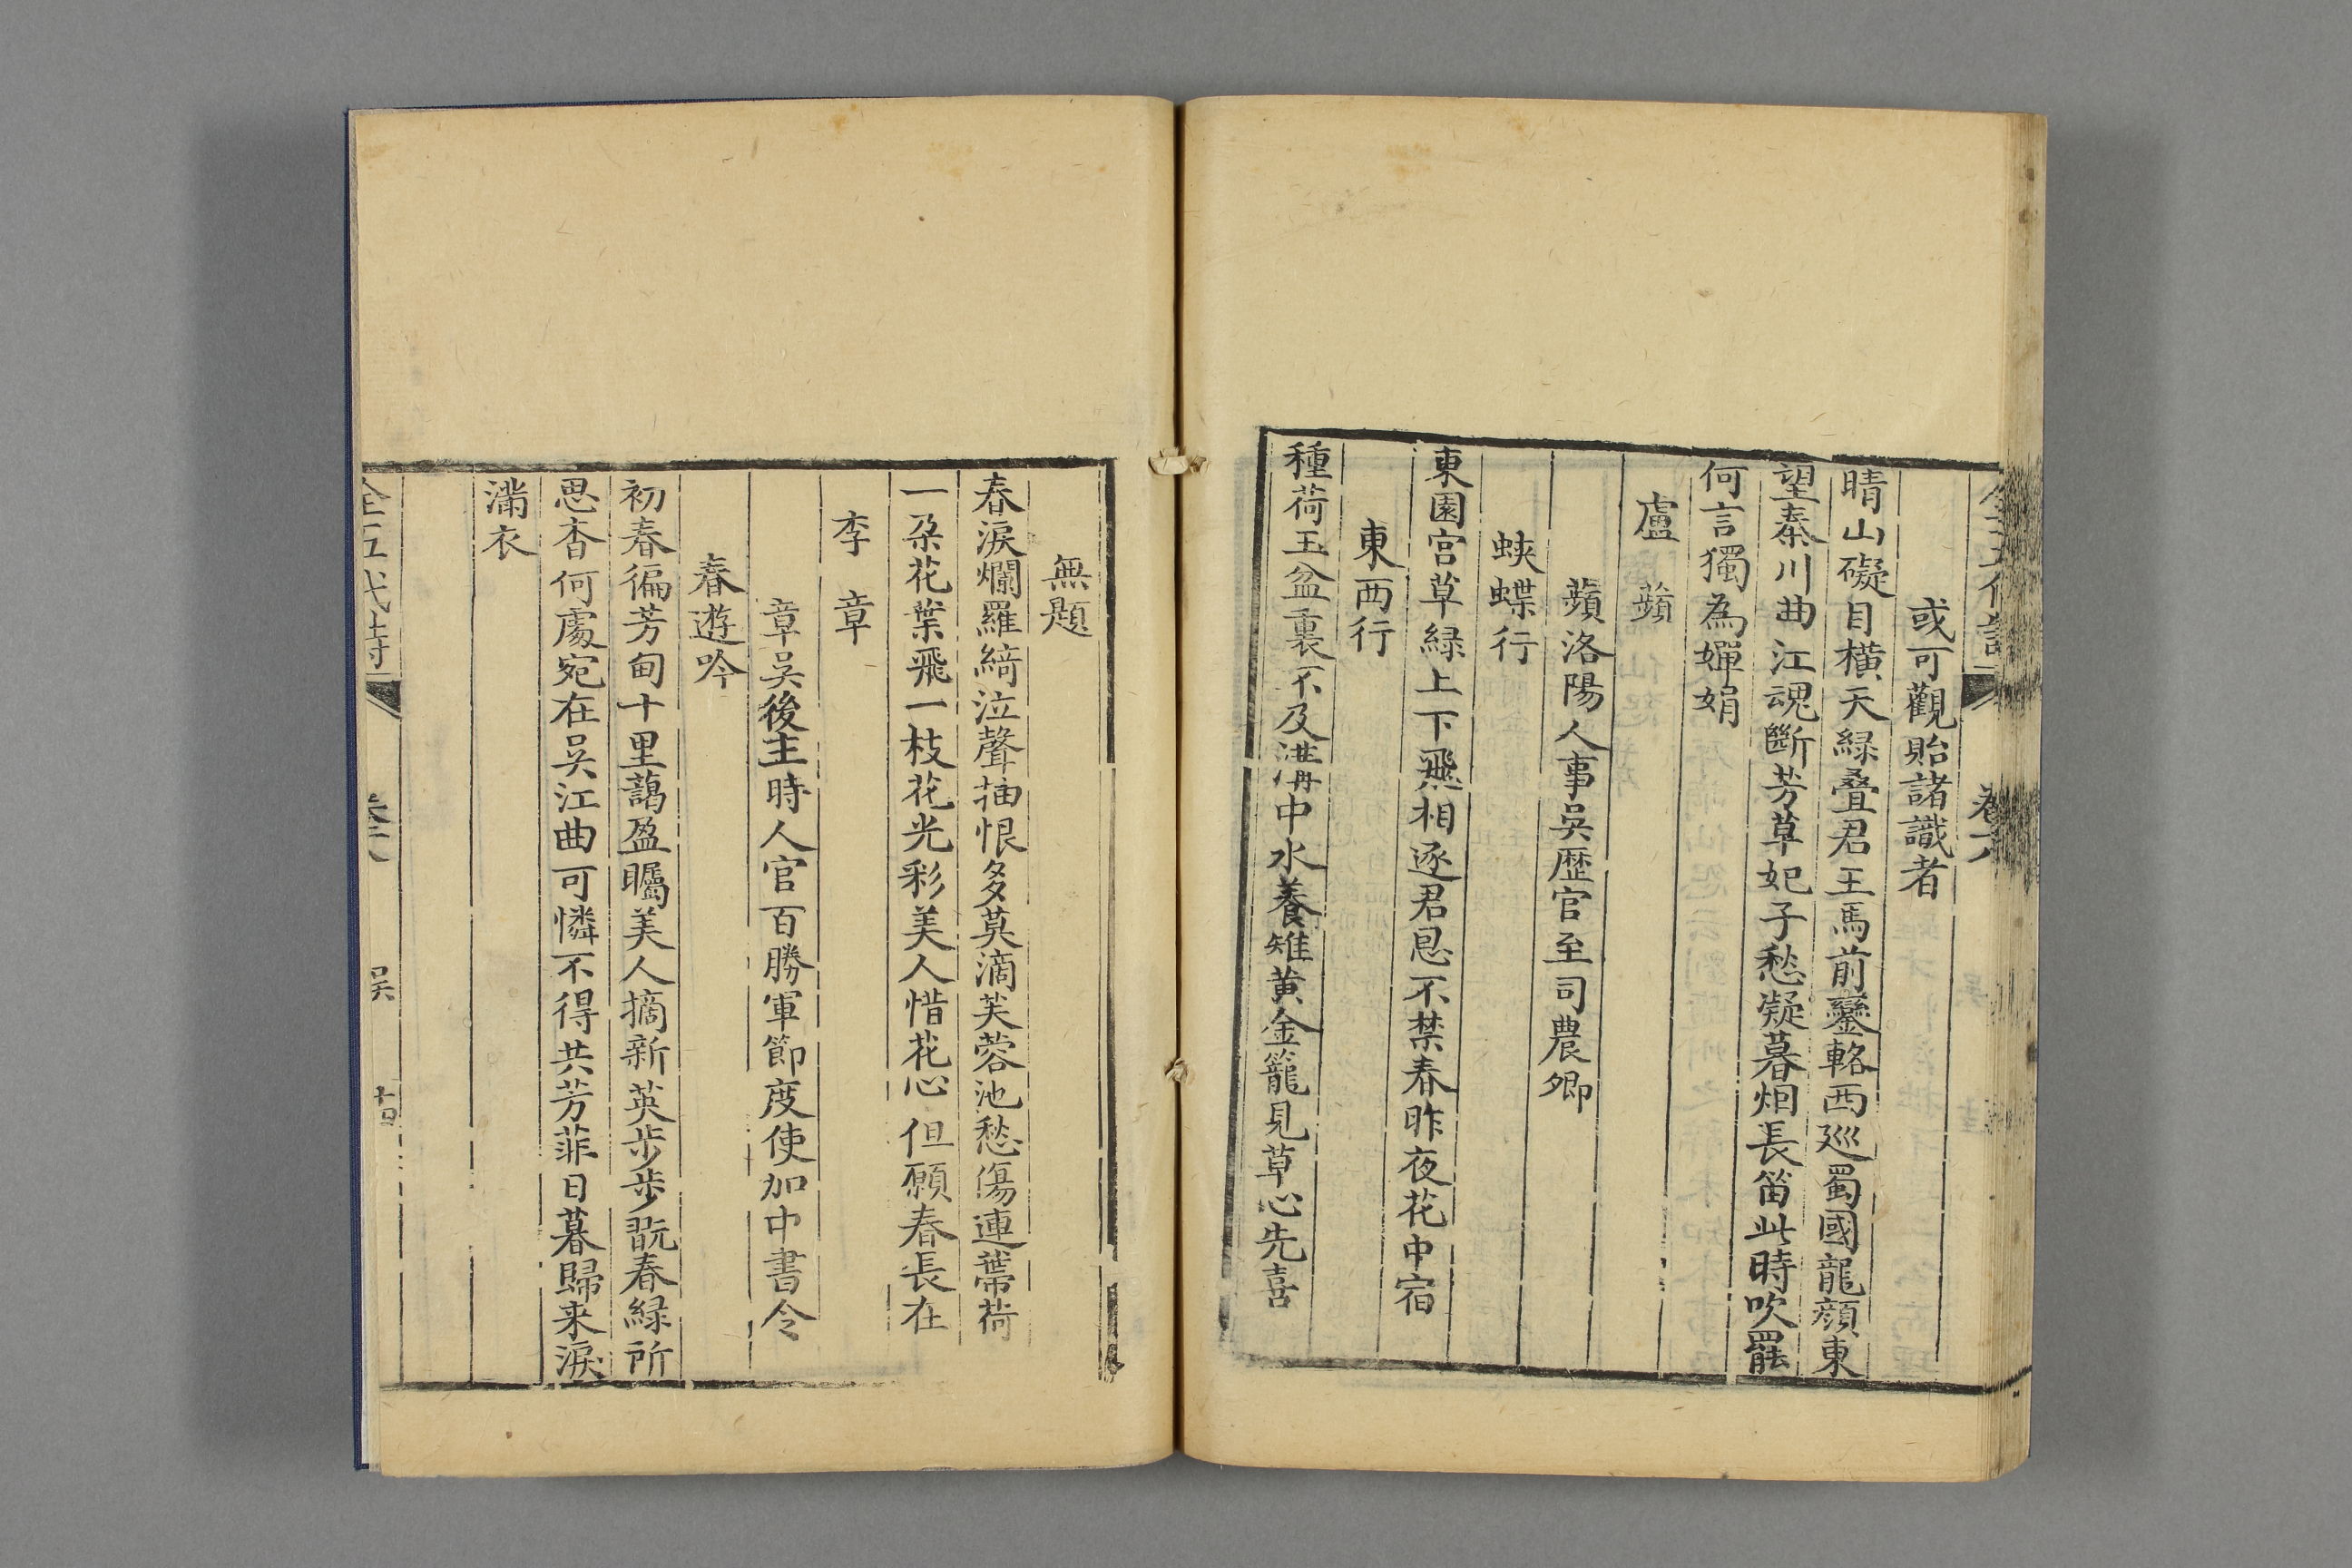 或可觀貽諸識者
晴山礙目横天緑叠君王馬前鑾輅西廵蜀國龍顔東
望秦川曲江魂斷芳草妃子愁凝暮烟長笛此時吹罷
何言獨為嬋娟
盧蘋
蘋洛陽人事吳歷官至司農卿
蛺蝶行
東園宫草緑上下飛相逐君恩不禁春昨夜花中宿
東西行
種荷玉盆裏不及溝中水養雉黄金籠見草心先喜
無題
春淚爛羅綺泣聲抽恨多莫滴芙蓉池愁傷連蒂荷
一朶花葉飛一枝花光彩美人惜花心但願春長在
李章
章吳後主時人官百勝軍節度使加中書令
春遊吟
初春徧芳甸十里藹盈矚美人摘新英步步翫春緑所
思杳何處宛在吳江曲可憐不得共芳菲日暮歸来淚
滿衣
全五代詩 吳